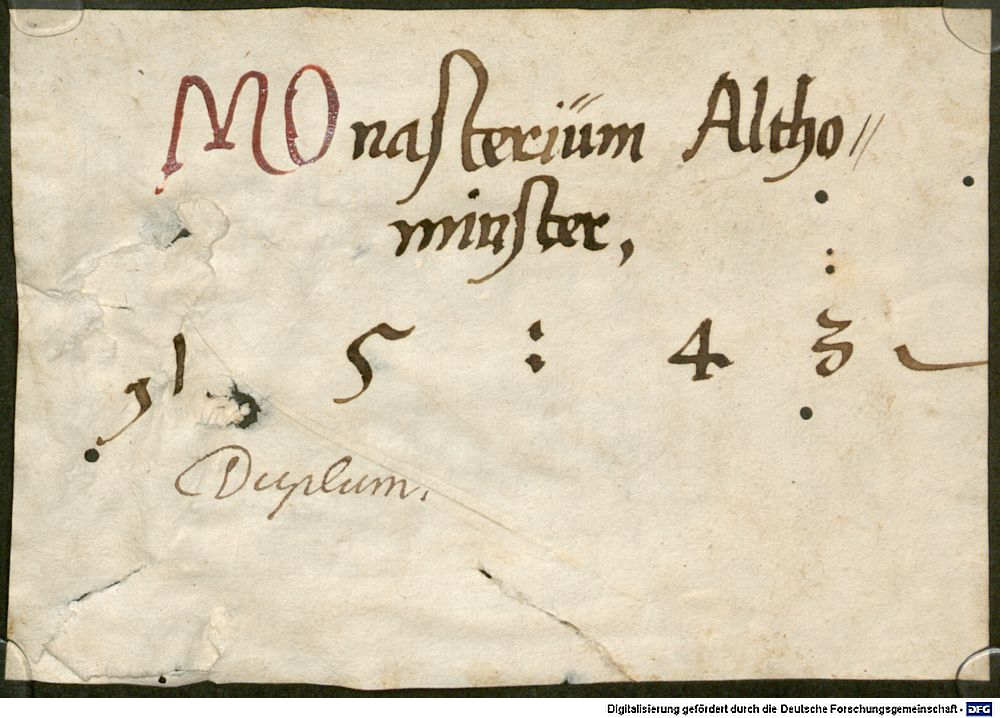 MOnasterium Altho=
minster,
1 5 : 4 3
Duplum.
Digitalisierung gefördert durch die Deutsche Forschungsgemeinschaft - DFG